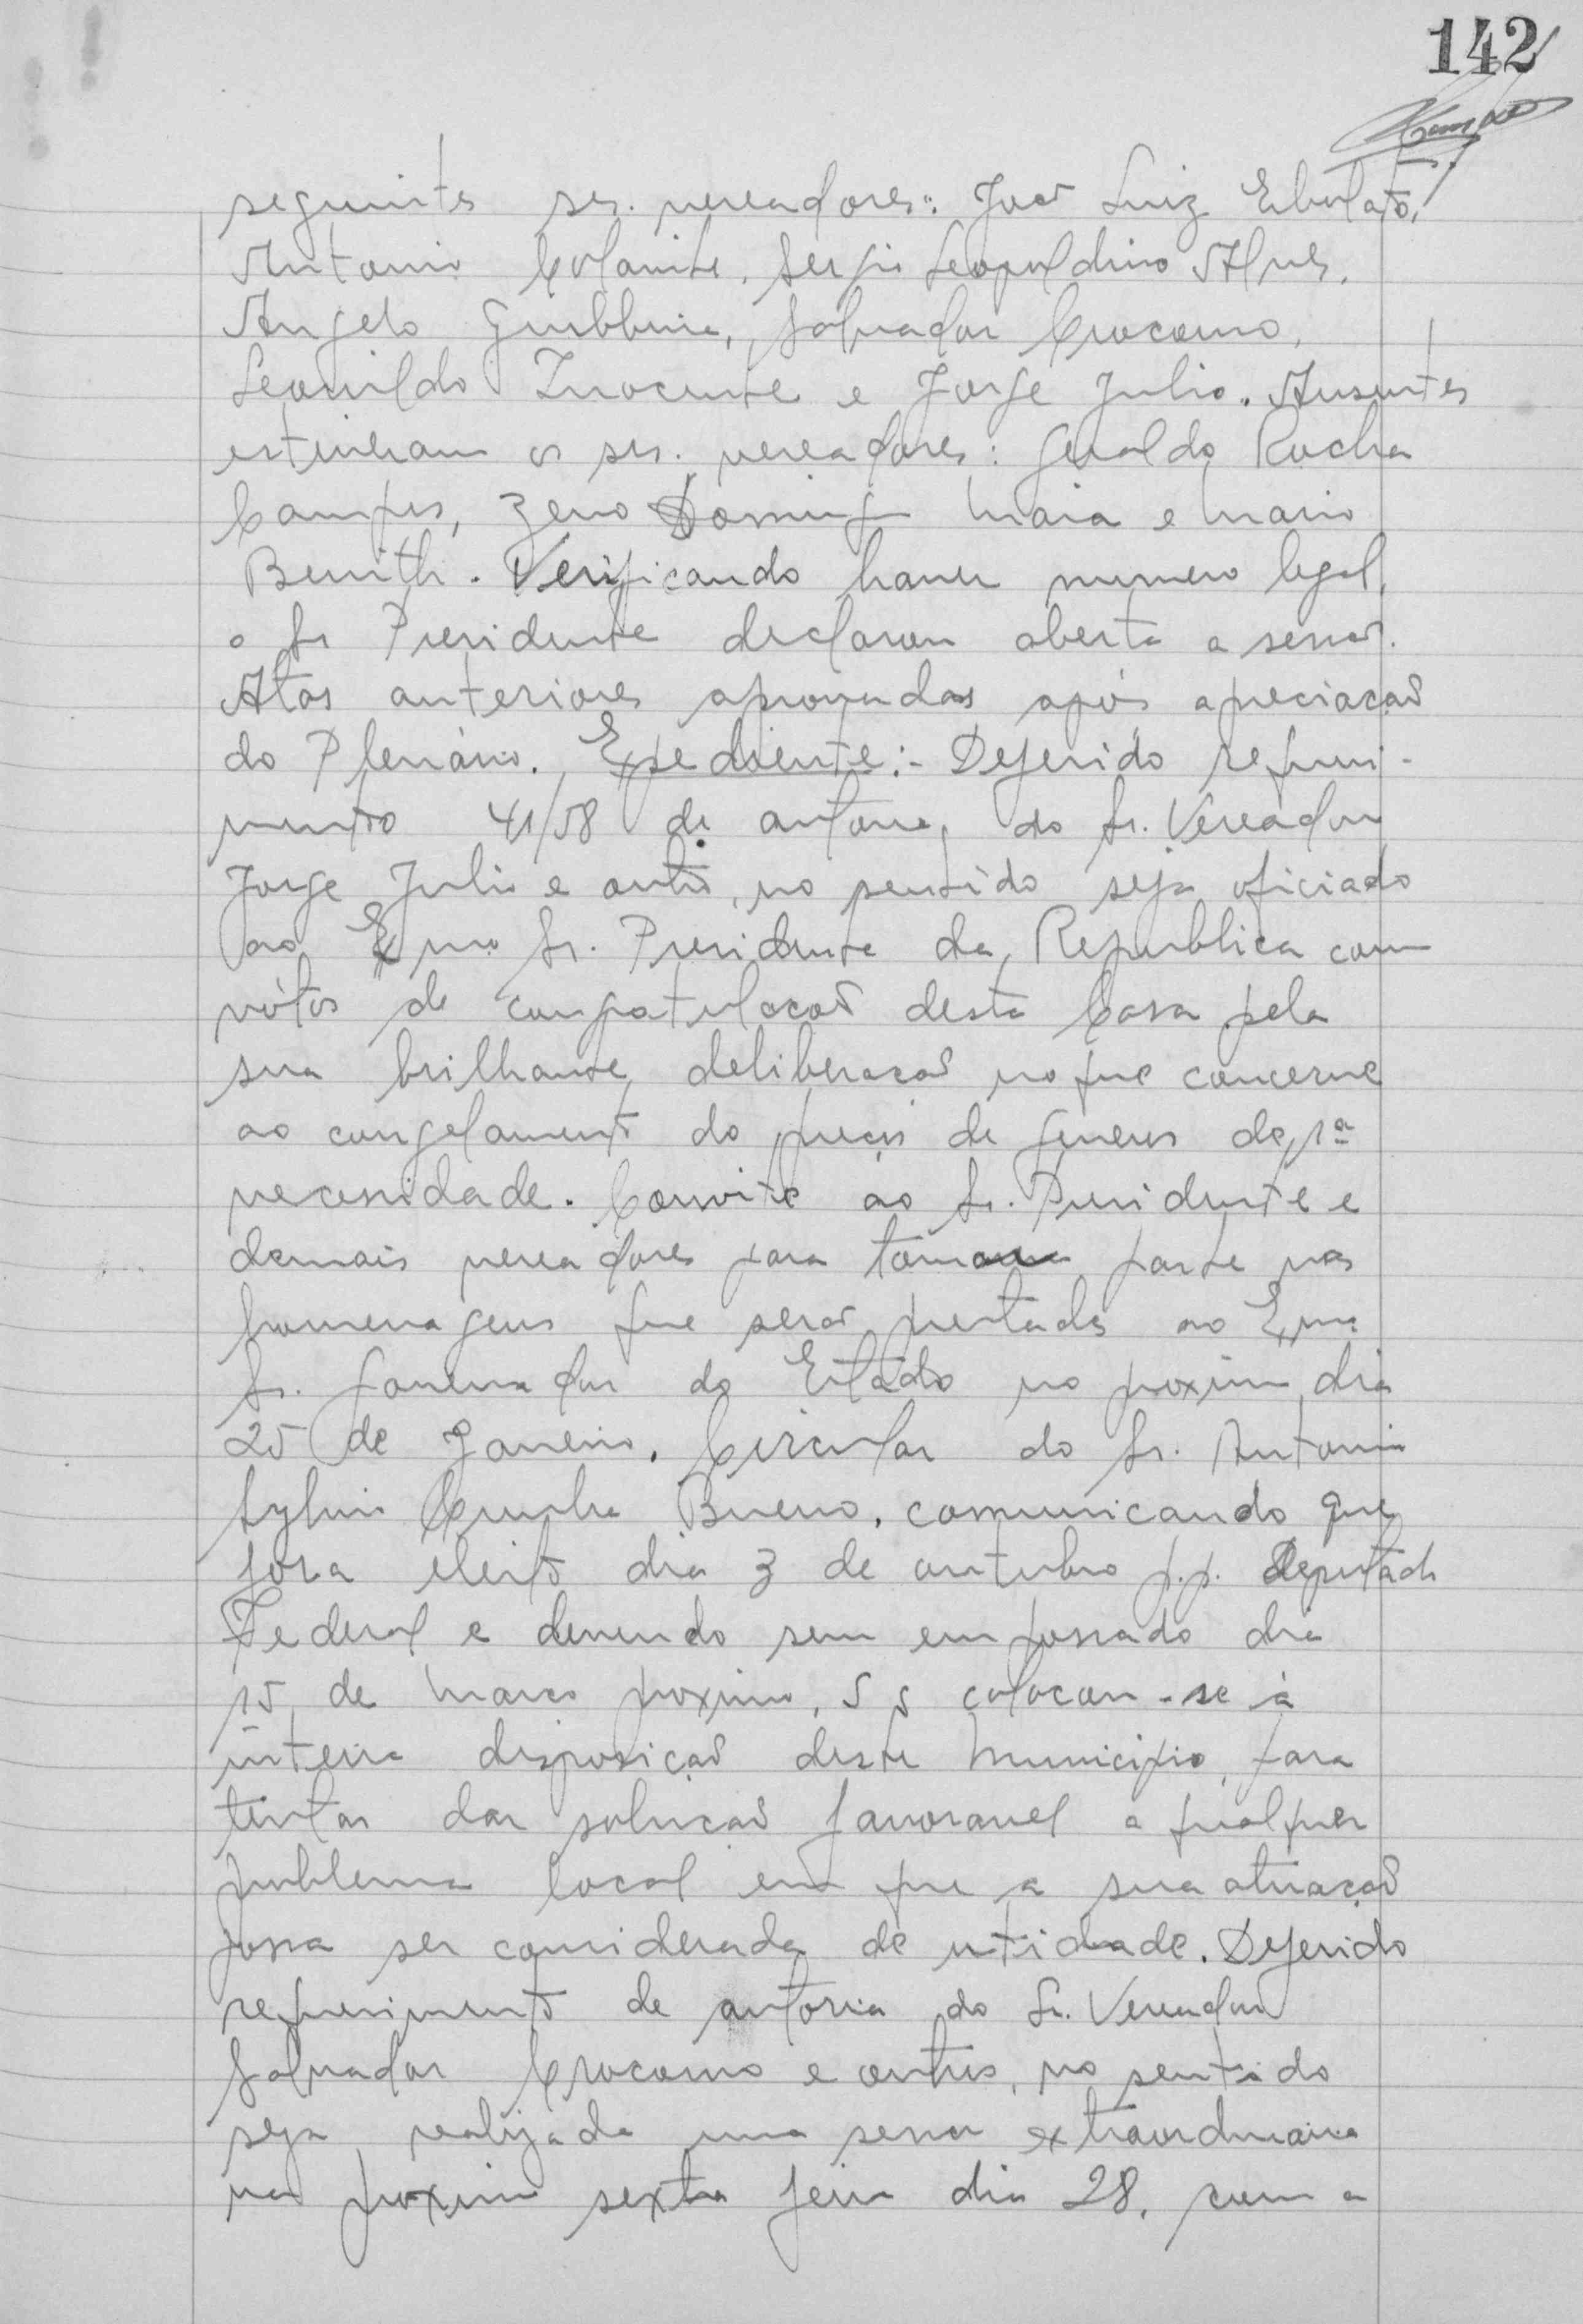 142
seguintes srs. vereadores: João Luiz
Antonio Colamite, Sergio Leopoldino Alves,
Angelo Salvador Crocomo,
Leonildo Inocente e Jorge Julio. Ausentes
estiveram os srs. vereadores: Geraldo Rocha
Campos, Zeno Domingos Maia e Mario
Benith. Verificando haver numero legal,
o Sr Presidente declarou aberta a sessão.
Atas anteriores aprovadas após apreciação
do Plenário. Expediente:- Deferido requeri-
mento 41/58 de autoria do Sr. Vereador
Jorge Julio e outro, no sentido seja oficiado
ao Exmo Sr. Presidente da Republica com
vótos de congratulação desta Casa pela
sua brilhante deliberação no que concerne
ao congelamento do preços de generos de 1ª
necessidade. Convite ao Sr. Presidente e
demais vereadores para tomarem parte nas
homenagens que serão prestadas ao Exmo
Sr. Governador do Estado no proximo dia
25 de Janeiro. Circular do Sr. Antonio
Sylvio Cunha Bueno, comunicando que
fora eleito dia 3 de outubro p.p. Deputado
Federal e devendo sem empossado dia
15 de Março proximo, S S colocou-se à
inteira disposição deste Municipio, para
tentar dar solução favoravel a qualquer
problema local em que a sua atuação
possa ser considerada de utidade. Deferido
requerimento de autoria do Sr. Vereador
Salvador Crocomo e outros, no sentido
seja realizada uma sessão extraordinaria
na proxima sexta feira dia 28, com a